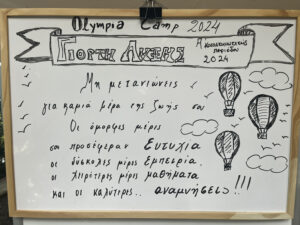 Olympia Camp 2024
ΓΙΟΡΤΗ ΛΗΞΗΣ
Α Κατασκηνωτικής
περιόδου
2024
Μη μετανιώνεις
για καμιά μέρα της ζωής σου
Οι όμορφες μέρες
σου προσέφεραν Ευτυχία
οι δύσκολες μέρες Εμπειρία.
οι χειρότερες μέρες μαθήματα
και οι καλύτερες.. αναμνήσεις!!!